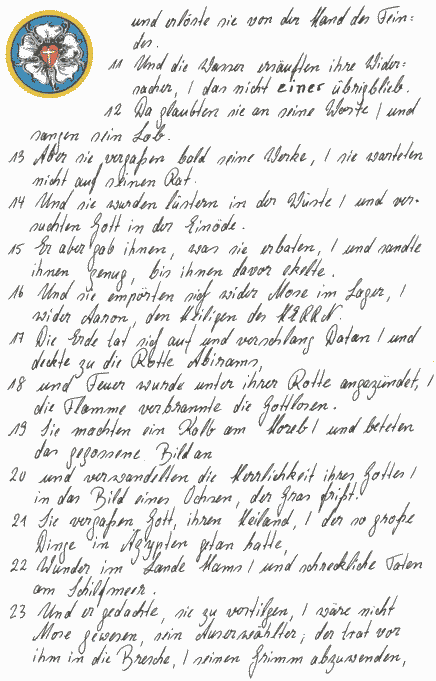 und erlöste sie von der Hand des Fein-
des.
11 Und die Wasser ersäuften ihre Wider-
sacher, / das nicht einer übrigblieb.
12 Da glaubten sie an seine Worte / und
sangen sein Lob.
13 Aber sie vergaßen bald seine Werke, / sie warteten
nicht auf seinen Rat.
14 Und sie wurden lüstern in der Wüste / und ver-
suchten Gott in der Einöde.
15 Er aber gab ihnen, was sie erbaten, / und sandte
ihnen genug, bis ihnen davor ekelte.
16 Und sie empörten sich wider Mose im Lager, /
wider Aaron, den Heiligen des HERRN.
17 Die Erde tat sich auf und verschlang Datan / und
deckte zu die Rotte Abirams,
18 und Feuer wurde unter ihrer Rotte angezündet, /
die Flamme verbrannte die Gottlosen.
19 Sie machten ein Kalb am Horeb / und beteten
das gegossene Bild an
20 und verwandelten die Herrlichkeit ihres Gottes /
in das Bild eines Ochsen, der Gras frißt.
21 Sie vergaßen Gott, ihren Heiland, / der so große
Dinge in Ägypten getan hatte,
22 Wunder im Lande Hams / und schreckliche Taten
am Schilfmeer.
23 Und er gedachte, sie zu vertilgen, / wäre nicht
Mose gewesen, sein Auserwählter; der trat vor
ihm in die Bresche, / seinen Grimm abzuwenden,